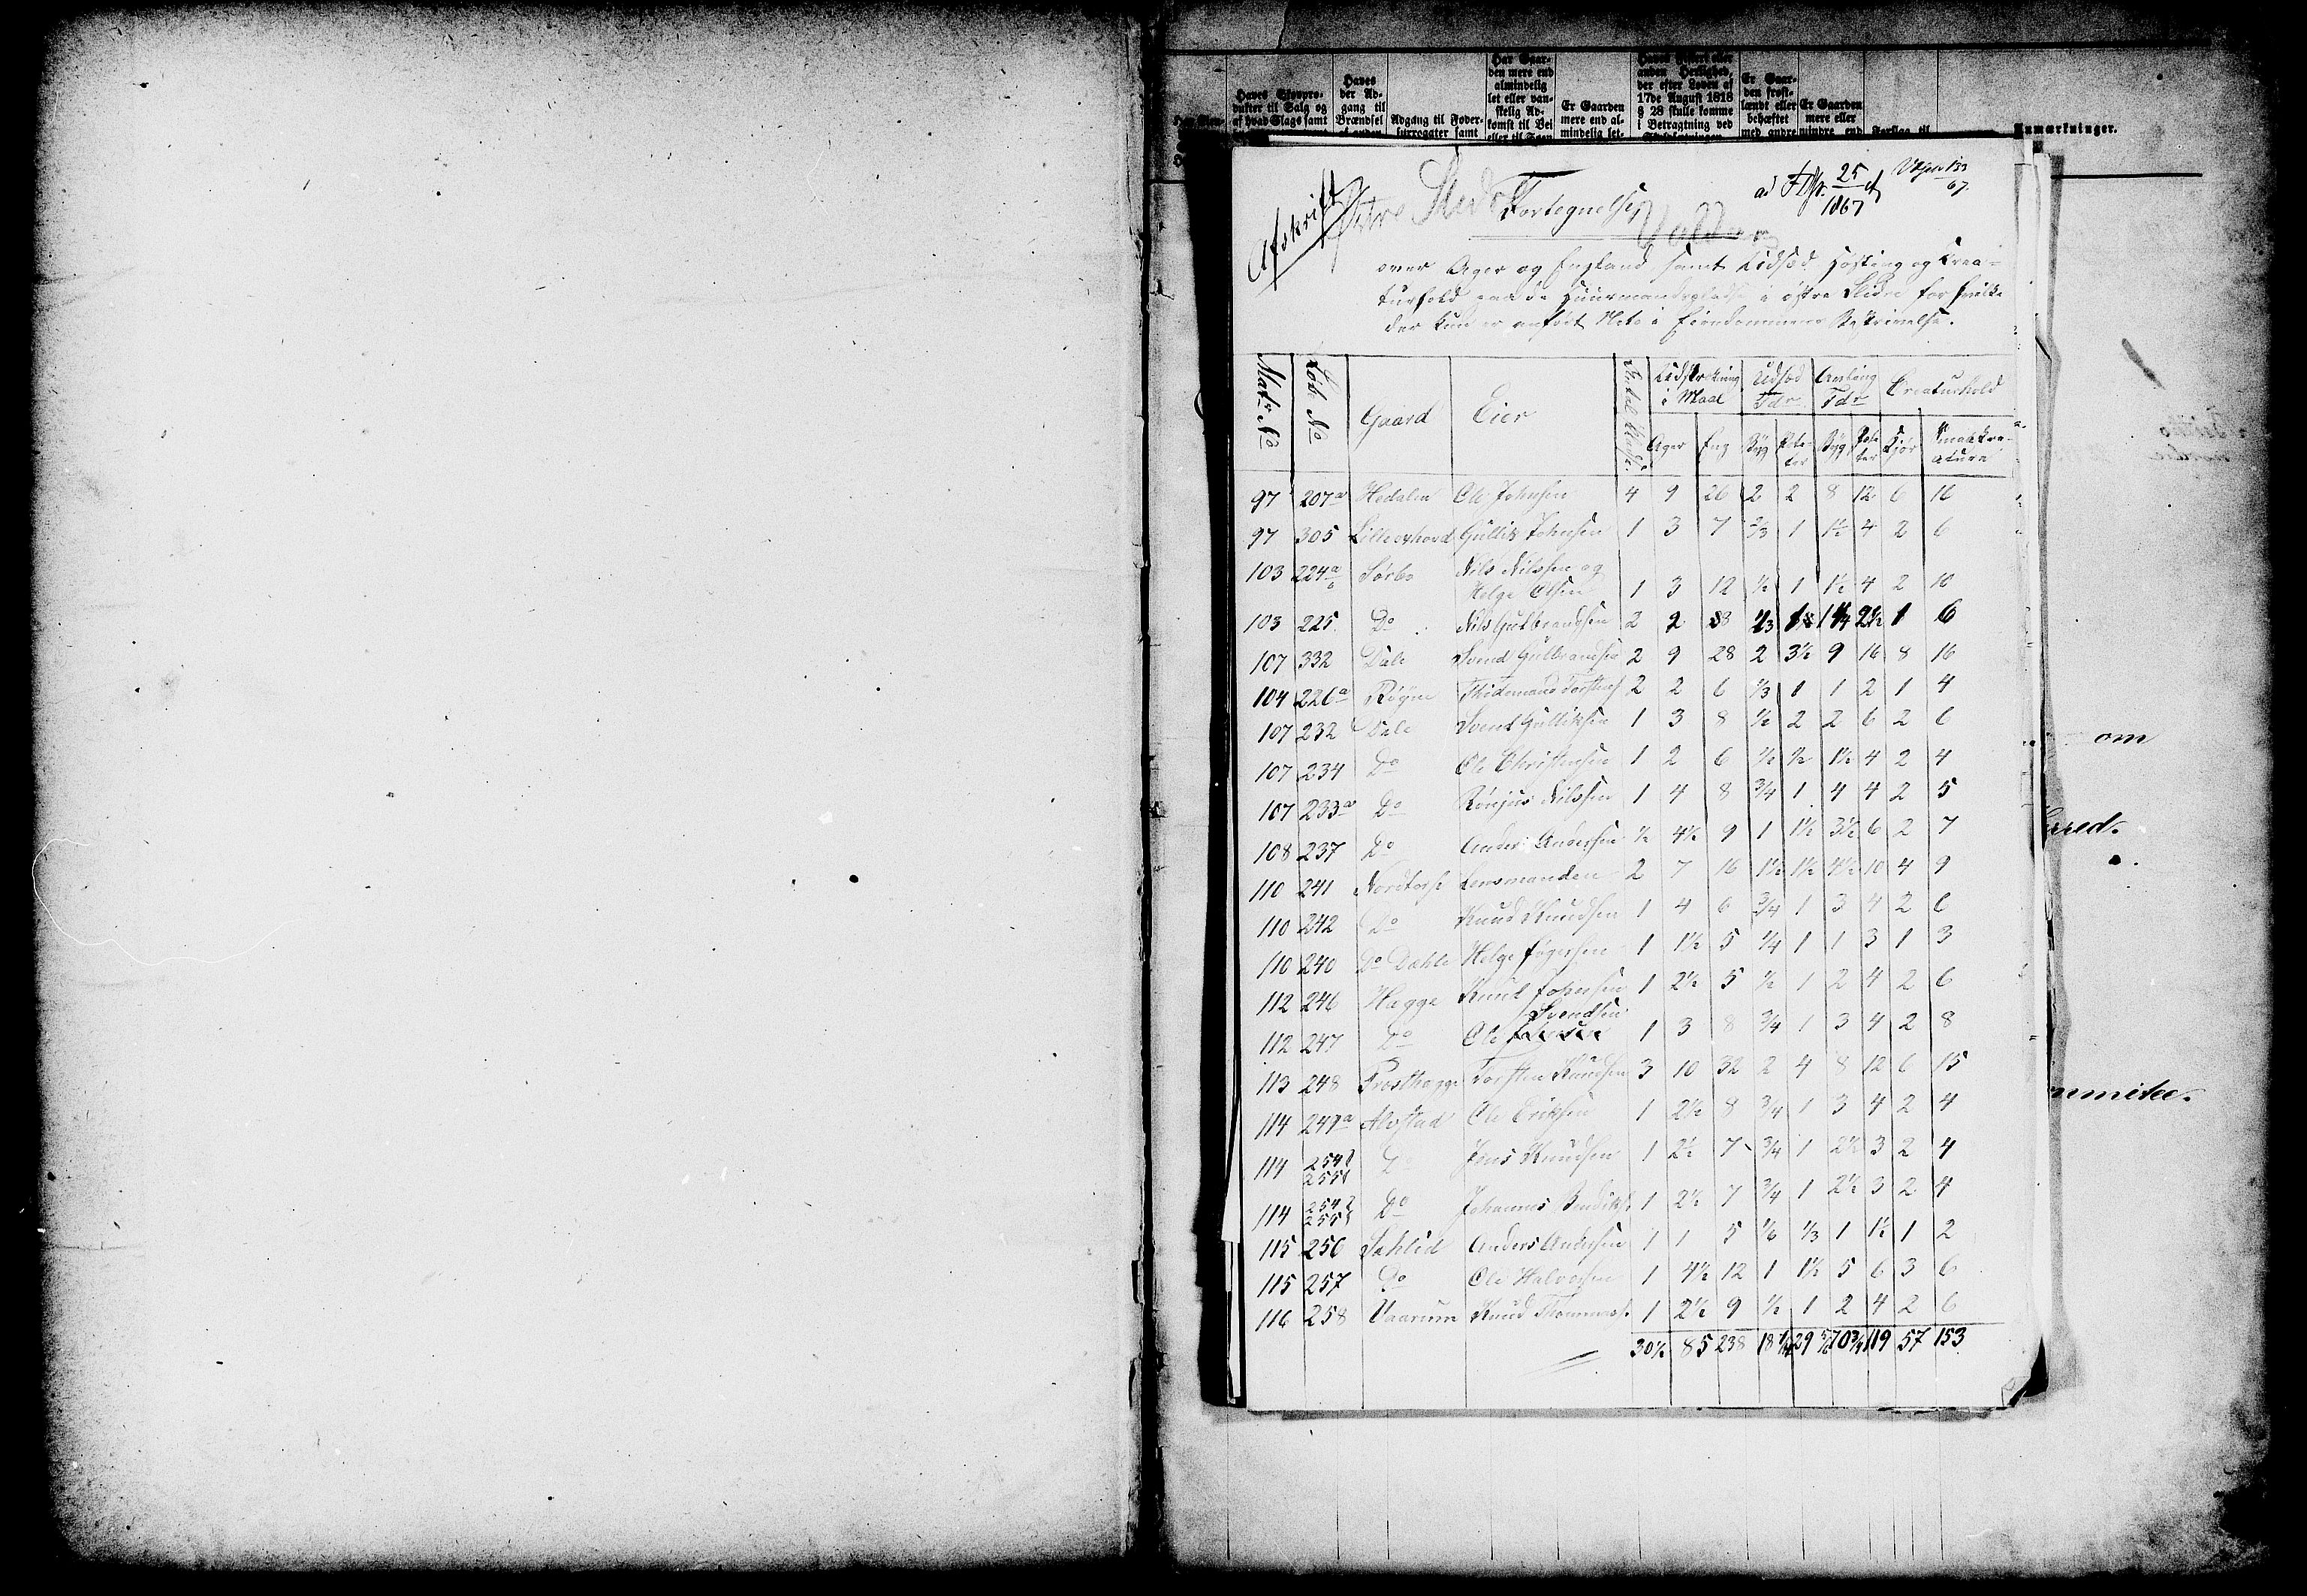 Haves Skovpro-
dukter til Salg og
af hvad Slags samt
Haves
der Ad-
gang til
Brændsel
Adgang til Foder-
surrogater samt
Har Gaar-
den mere end
almindelig
let eller van-
skelig Ad-
komst til Vei
eller til Søen
Er Gaarden
mere end al-
mindelig let-
anden Herlighed,
der efter Loven af
17de August 1818
§ 28 skulle komme
i Betragtning ved
Er Gaar-
den frost-
lændt eller
behæftet
med andre
Er Gaarden
mere eller
mindre end
Forslag til
Anmærkninger.
Afskrift
Østre Slidre
Fortegnelse
Valders
ad 25
1867
67.
over Ager og England samt Udsæd Høsting og Crea-
turhold paa de Huusmandspladse i østre Slidre for hvilke
der kun er anført Note i Eiendommens Beskrivelse.
Matr No | Løb No | Gaard | Eier | Antal Pladse | Udstrækning i Maal | Udsæd Tdr | Avling Tdr | Creaturhold
Ager | Eng | Byg | Pote- ter | Byg | Pote ter | Kjør | Smaakre- aturer
97 207a Hedalen Ole Johnsen 4 9 26 2 2 8 12 6 16
97 305 Lilleovhord Gullik Johnsen 1 3 7 2/3 1 1½ 4 2 6
103 224a Sørbo Nils Nilssen og
Helge Olsen 1 3 12 ½ 1 1½ 4 2 10
103 225 Do Nils Gulbrandsen 2 2 8 1/3 1 1¼ 2½ 1 6
107 332 Dale Svend Gulbrandsen 2 9 28 2 3½ 9 16 8 16
104 226a Røgne Thidemand Torstens 2 2 6 1/3 1 1 2 1 4
107 232 Dale Svend Gulliksen 1 3 8 ½ 2 2 6 2 6
107 234 Do Ole Christensen 1 2 6 ½ ½ 1½ 4 2 4
107 233a Do Rønjus Nilssen 1 4 8 ¾ 1 4 4 2 5
108 237 Do Anders Andersen ½ 4½ 9 1 1½ 3½ 6 2 7
110 241 Nordtorpe Lensmanden 2 7 16 1½ 1½ 4½ 10 4 9
110 242 Do Knud Knudsen 1 4 6 ¾ 1 3 4 2 6
110 240 Do Dæhle Helge 1 1½ 5 ¼ 1 1 3 1 3
112 246 Hegge Knud Johnsen 1 2½ 5 ½ 1 2 4 2 6
Svendsen
112 247 Do Ole 1 3 8 ¾ 1 3 4 2 8
113 248 Presthegge Torsten Knudsen 3 10 32 2 4 8 12 6 15
114 249a Alvstad Ole Eriksen 1 2½ 8 ¾ 1 3 4 2 4
114 254 255 Do Jens Knudsen 1 2½ 7 ¾ 1 2½ 3 2 4
114 254 255 Do Johannes Bendiks. 1 2½ 7 ¾ 1 2½ 3 2 4
115 256 Sehlid Anders Andersen 1 1 5 1/6 1/3 1 1½ 1 2
115 257 Do Ole Halvorsen 1 4½ 12 1 1½ 5 6 3 6
116 258 Vaarum Knud Thommess. 1 2½ 9 ½ 1 2 4 2 6
30½ 85 238 18¼ 29 5/6 70¾ 119 57 153
om
erred.
mmitee.